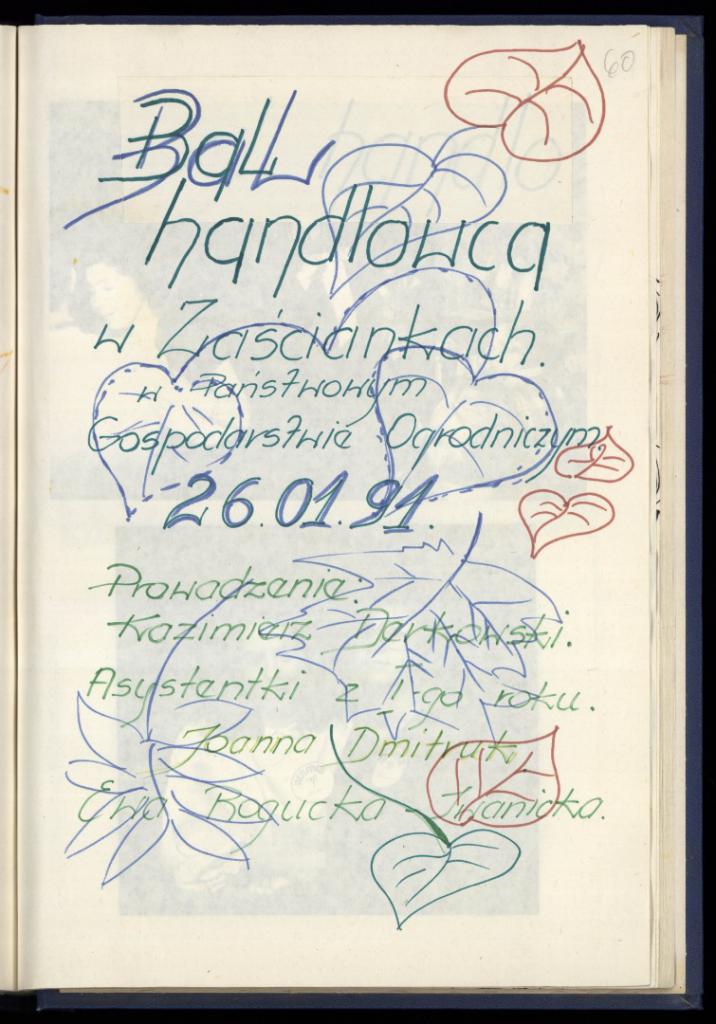 60
Bal
handlowca
w Zaściankach.
w Państwowym
Gospodarstwie Ogrodniczym,
26.01.91.
Prowadzenie:
Kazimierz Derkowski.
Asystentki z I-go roku.
Joanna Dmitruk,
Ewa Bogucka - Iwanicka.